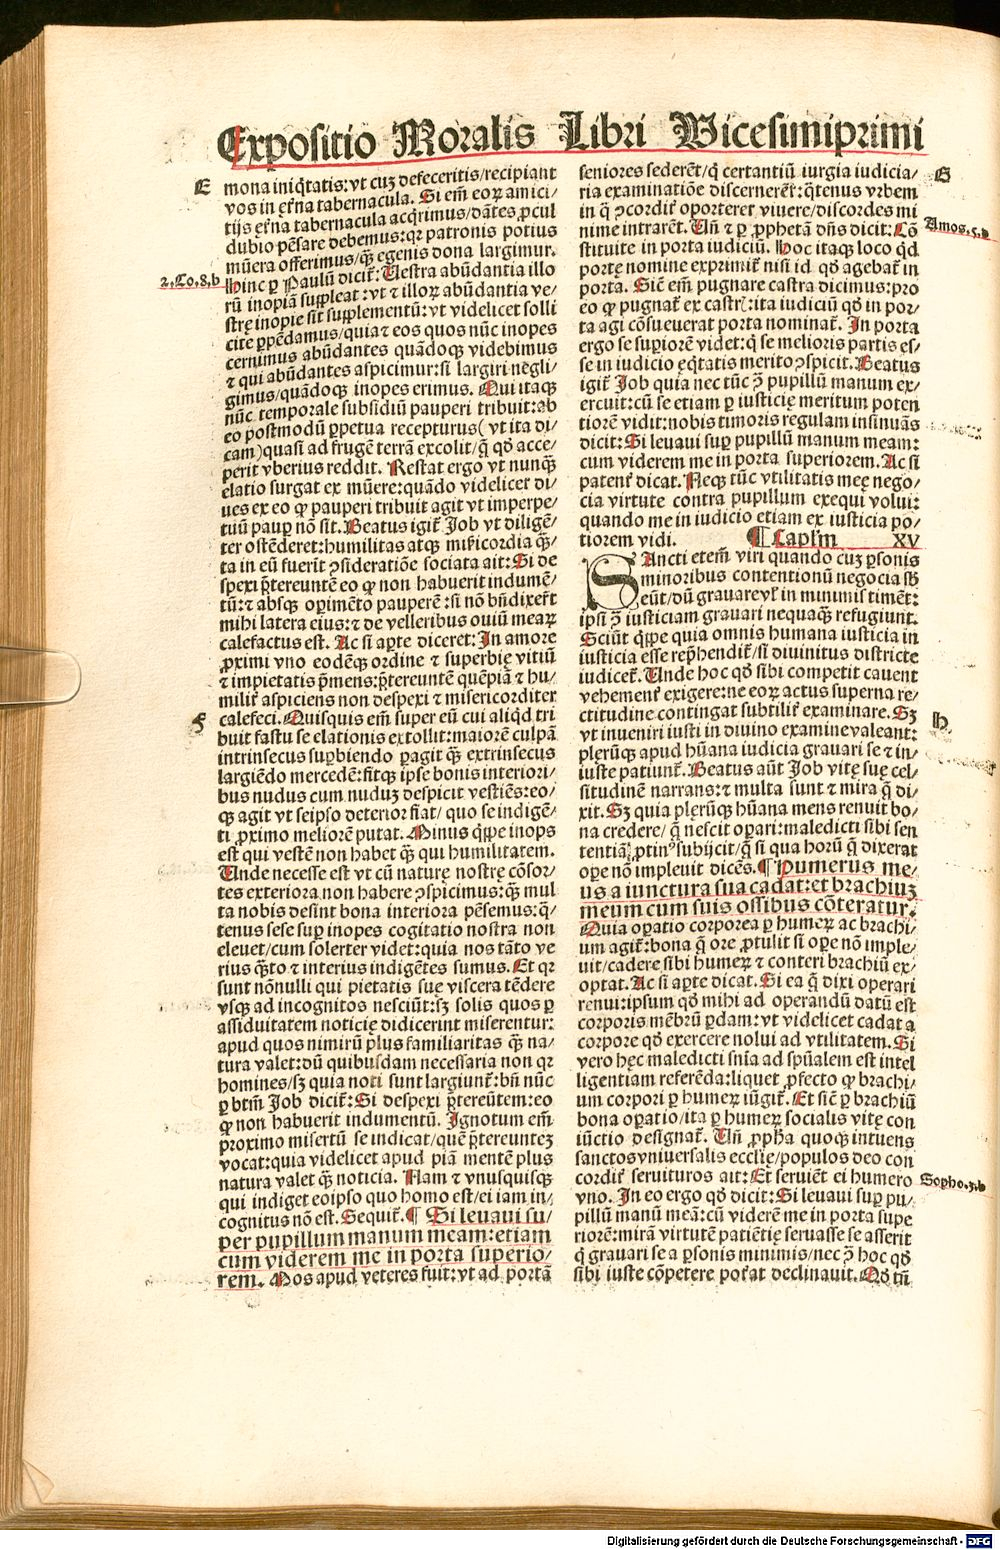 Expositio Moralis Libri Vicesimiprimi
E
mona iniq̇tatis: vt cuꝫ defeceritis/recipiant
vos in ęt̃na tabernacula. Si em̃ eoꝝ amici/
tijs ęt̃na tabernacula acq̇rimus/dātes ꝓcul
dubio pēsare debemus: qꝛ patronis potius
mūera offerimus/q̄ꝫ egenis dona largimur.
2. Co. 8. b
Hinc ꝑ Paulū dicit̃: Uestra abūdantia illo
rū inopiam suppleat: vt ⁊ illoꝝ abūdantia ve/
strę inopie sīt supplementū: vt videlicet solli
cite ꝑpēdamus/quia ⁊ eos quos nūc inopes
cernimus abūdantes quādoqꝫ videbimus
⁊ qui abūdantes aspicimur: si largiri negli/
gimus/quādoqꝫ inopes erimus. Qui itaqꝫ
nūc temporale subsidiū pauperi tribuit: ab
eo postmodū ꝑpetua recepturus (vt ita di/
cam) quasi ad frugē terrā excolit/q̄ qð acce/
perit vberius reddit. Restat ergo vt nunq̄ꝫ
elatio surgat ex mūere: quādo videlicet di/
ues ex eo ꝙ pauperi tribuit agit vt imperpe/
tuū pauꝑ nō sit. Beatus igit̃ Job vt diligē/
ter ostēderet: humilitas atqꝫ mīẽicordia q̄ꝫ/
ta in eū fuerit ꝯsideratiōe sociata ait: Si de
spexi p̄tereuntē eo ꝙ non habuerit indumē/
tū: ⁊ absqꝫ oꝑimēto pauperē: si nō bn̄dixer̃t
mihi latera eius: ⁊ de velleribus ouiū meaꝝ
calefactus est. Ac si aꝑte diceret: In amore
ꝓximi vno eodēqꝫ ordine ⁊ superbię vitiū
⁊ impietatis p̄mens: p̄tereuntē quēpiā ⁊ hu/
milit̃ aspiciens non despexi ⁊ misericorditer
F
calefeci. Quisquis em̃ super eū cui aliq̇d tri
buit fastu se elationis extollit: maiorē culpā
intrinsecus suꝑbiendo ꝑagit q̄ꝫ extrinsecus
largiēdo mercedē: fitqꝫ ipse bonis interiori/
bus nudus cum nuduꝫ despicit vestiēs: eo/
qꝫ agit vt seipso deterior fiat/quo se indigē/
ti ꝓximo meliorē putat. Minus q̇ppe inops
est qui vestē non habet q̄ꝫ qui humilitatem.
Unde necesse est vt cū naturę nostrę cōsor/
tes exteriora non habere ꝯspicimus: q̄ꝫ mul
ta nobis desint bona interiora pēsemus: q̄/
tenus sese suꝑ inopes cogitatio nostra non
eleuet/cum solerter videt: quia nos tāto ve
rius q̄ꝫto ⁊ interius indigētes sumus. Et qꝛ
sunt nōnulli qui pietatis suę viscera tēdere
vsqꝫ ad incognitos nesciūt: sꝫ solis quos ꝑ
assiduitatem noticię didicerint miserentur:
apud quos nimirū plus familiaritas q̄ꝫ na/
tura valet: dū quibusdam necessaria non qꝛ
homines/sꝫ quia noti sunt largiunt̃: bn̄ nūc
ꝑ btm̃ Job dicit̃: Si despexi p̄tereūtem: eo
ꝙ non habuerit indumentū. Ignotum em̃
proximo misertū se indicat/quē p̄tereunteꝫ
vocat: quia videlicet apud piā mentē plus
natura valet q̄ꝫ noticia. Nam ⁊ vnusquisqꝫ
qui indiget eoipso quo homo est/ei iam in/
cognitus nō est. Sequit̃. ¶ Si leuaui su/
per pupillum manum meam: etiam
cum viderem me in porta superio/
rem. Mos apud veteres fuit: vt ad portā
seniores sederēt/q̇ certantiū iurgia iudicia/
G
ria examinatiōe discernerēt: q̄tenus vrbem
in q̄ ꝯcordit̃ oporteret viuere/discordes mi
nime intrarēt. Un̄ ⁊ ꝑ ꝓphetā dn̄s dicit: Cō
Amos. 5. d
stituite in porta iudiciū. Hoc itaqꝫ loco q̇d
portę nomine exprimit̃ nisi id qð agebat̃ in
porta. Sic̃ em̃ pugnare castra dicimus: pro
eo ꝙ pugnat̃ ex castr̃: ita iudiciū qð in por/
ta agi cōsueuerat porta nominat̃. In porta
ergo se suꝑiorē videt: q̇ se melioris partis es/
se in iudicio eq̇tatis merito ꝯspicit. Beatus
igit̃ Job quia nec tūc ꝯ̄ pupillū manum ex/
ercuit: cū se etiam ꝑ iusticię meritum poten
tiorē vidit: nobis timoris regulam insinuās
dicit: Si leuaui suꝑ pupillū manum meam:
cum viderem me in porta superiorem. Ac si
patent̃ dicat. Neqꝫ tūc vtilitatis meę nego/
cia virtute contra pupillum exequi volui:
quando me in iudicio etiam ex iusticia po/
tiorem vidi. ¶ Capl'm XV
SAncti etem̃ viri quando cuꝫ ꝑsonis
minoribus contentionū negocia sb̄
eūt/dū grauare vl̃ in minimis timēt:
ipsi ꝯ̄ iusticiam grauari nequaqꝫ refugiunt.
Sciūt q̇ppe quia omnis humana iusticia in
iusticia esse rep̄hendit̃/si diuinitus districte
iudicet̃. Unde hoc qð sibi competit cauent
vehement̃ exigere: ne eoꝝ actus superna re/
ctitudine contingat subtilit̃ examinare. Sꝫ
h
vt inueniri iusti in diuino examine valeant:
plerūqꝫ apud hūana iudicia grauari se ⁊ in/
iuste patiunt̃. Beatus aūt Job vitę suę cel/
situdinē narrans: ⁊ multa sunt ⁊ mira q̄ di/
xit. Sꝫ quia plerūqꝫ hūana mens renuit bo/
na credere/q̄ nescit oꝑari: maledicti sibi sen
tentiā ꝓtinꝰ subijcit/q̄ si qua horū q̄ dixerat
oꝑe nō impleuit dicēs. ¶ Humerus me/
us a iunctura sua cadat: et brachiuꝫ
meum cum suis ossibus cōteratur.
Quia oꝑatio corporea ꝑ humeꝝ ac brachi/
um agit̃: bona q̄ ore ꝓtulit si oꝑe nō imple/
uit/cadere sibi humeꝝ ⁊ conteri brachiū ex/
optat. Ac si aꝑte dicat. Si ea q̄ dixi operari
renui: ipsum qð mihi ad operandū datū est
corporis mēbrū ꝑdam: vt videlicet cadat a
corpore qð exercere nolui ad vtilitatem. Si
vero hęc maledicti snīa ad spūalem est intel
ligentiam referēda: liquet ꝓfecto ꝙ brachi/
um corpori ꝑ humeꝝ iūgit̃. Et sic̃ ꝑ brachiū
bona oꝑatio/ita ꝑ humeꝝ socialis vitę con
iūctio designat̃. Un̄ ꝓph̄a quoqꝫ intuens
sanctos vniuersalis ecclię/populos deo con
cordit̃ seruituros ait: Et seruiēt ei humero
Sopho. 3. b
vno. In eo ergo qð dicit: Si leuaui suꝑ pu/
pillū manū meā: cū viderē me in porta supe
riorē: mirā virtutē patiētię seruasse se asserit
q̇ grauari se a ꝑsonis minimis/nec ꝯ̄ hoc qð
sibi iuste cōpetere poterat declinauit. Qð tn̄
Digitalisierung gefördert durch die Deutsche Forschungsgemeinschaft - DFG